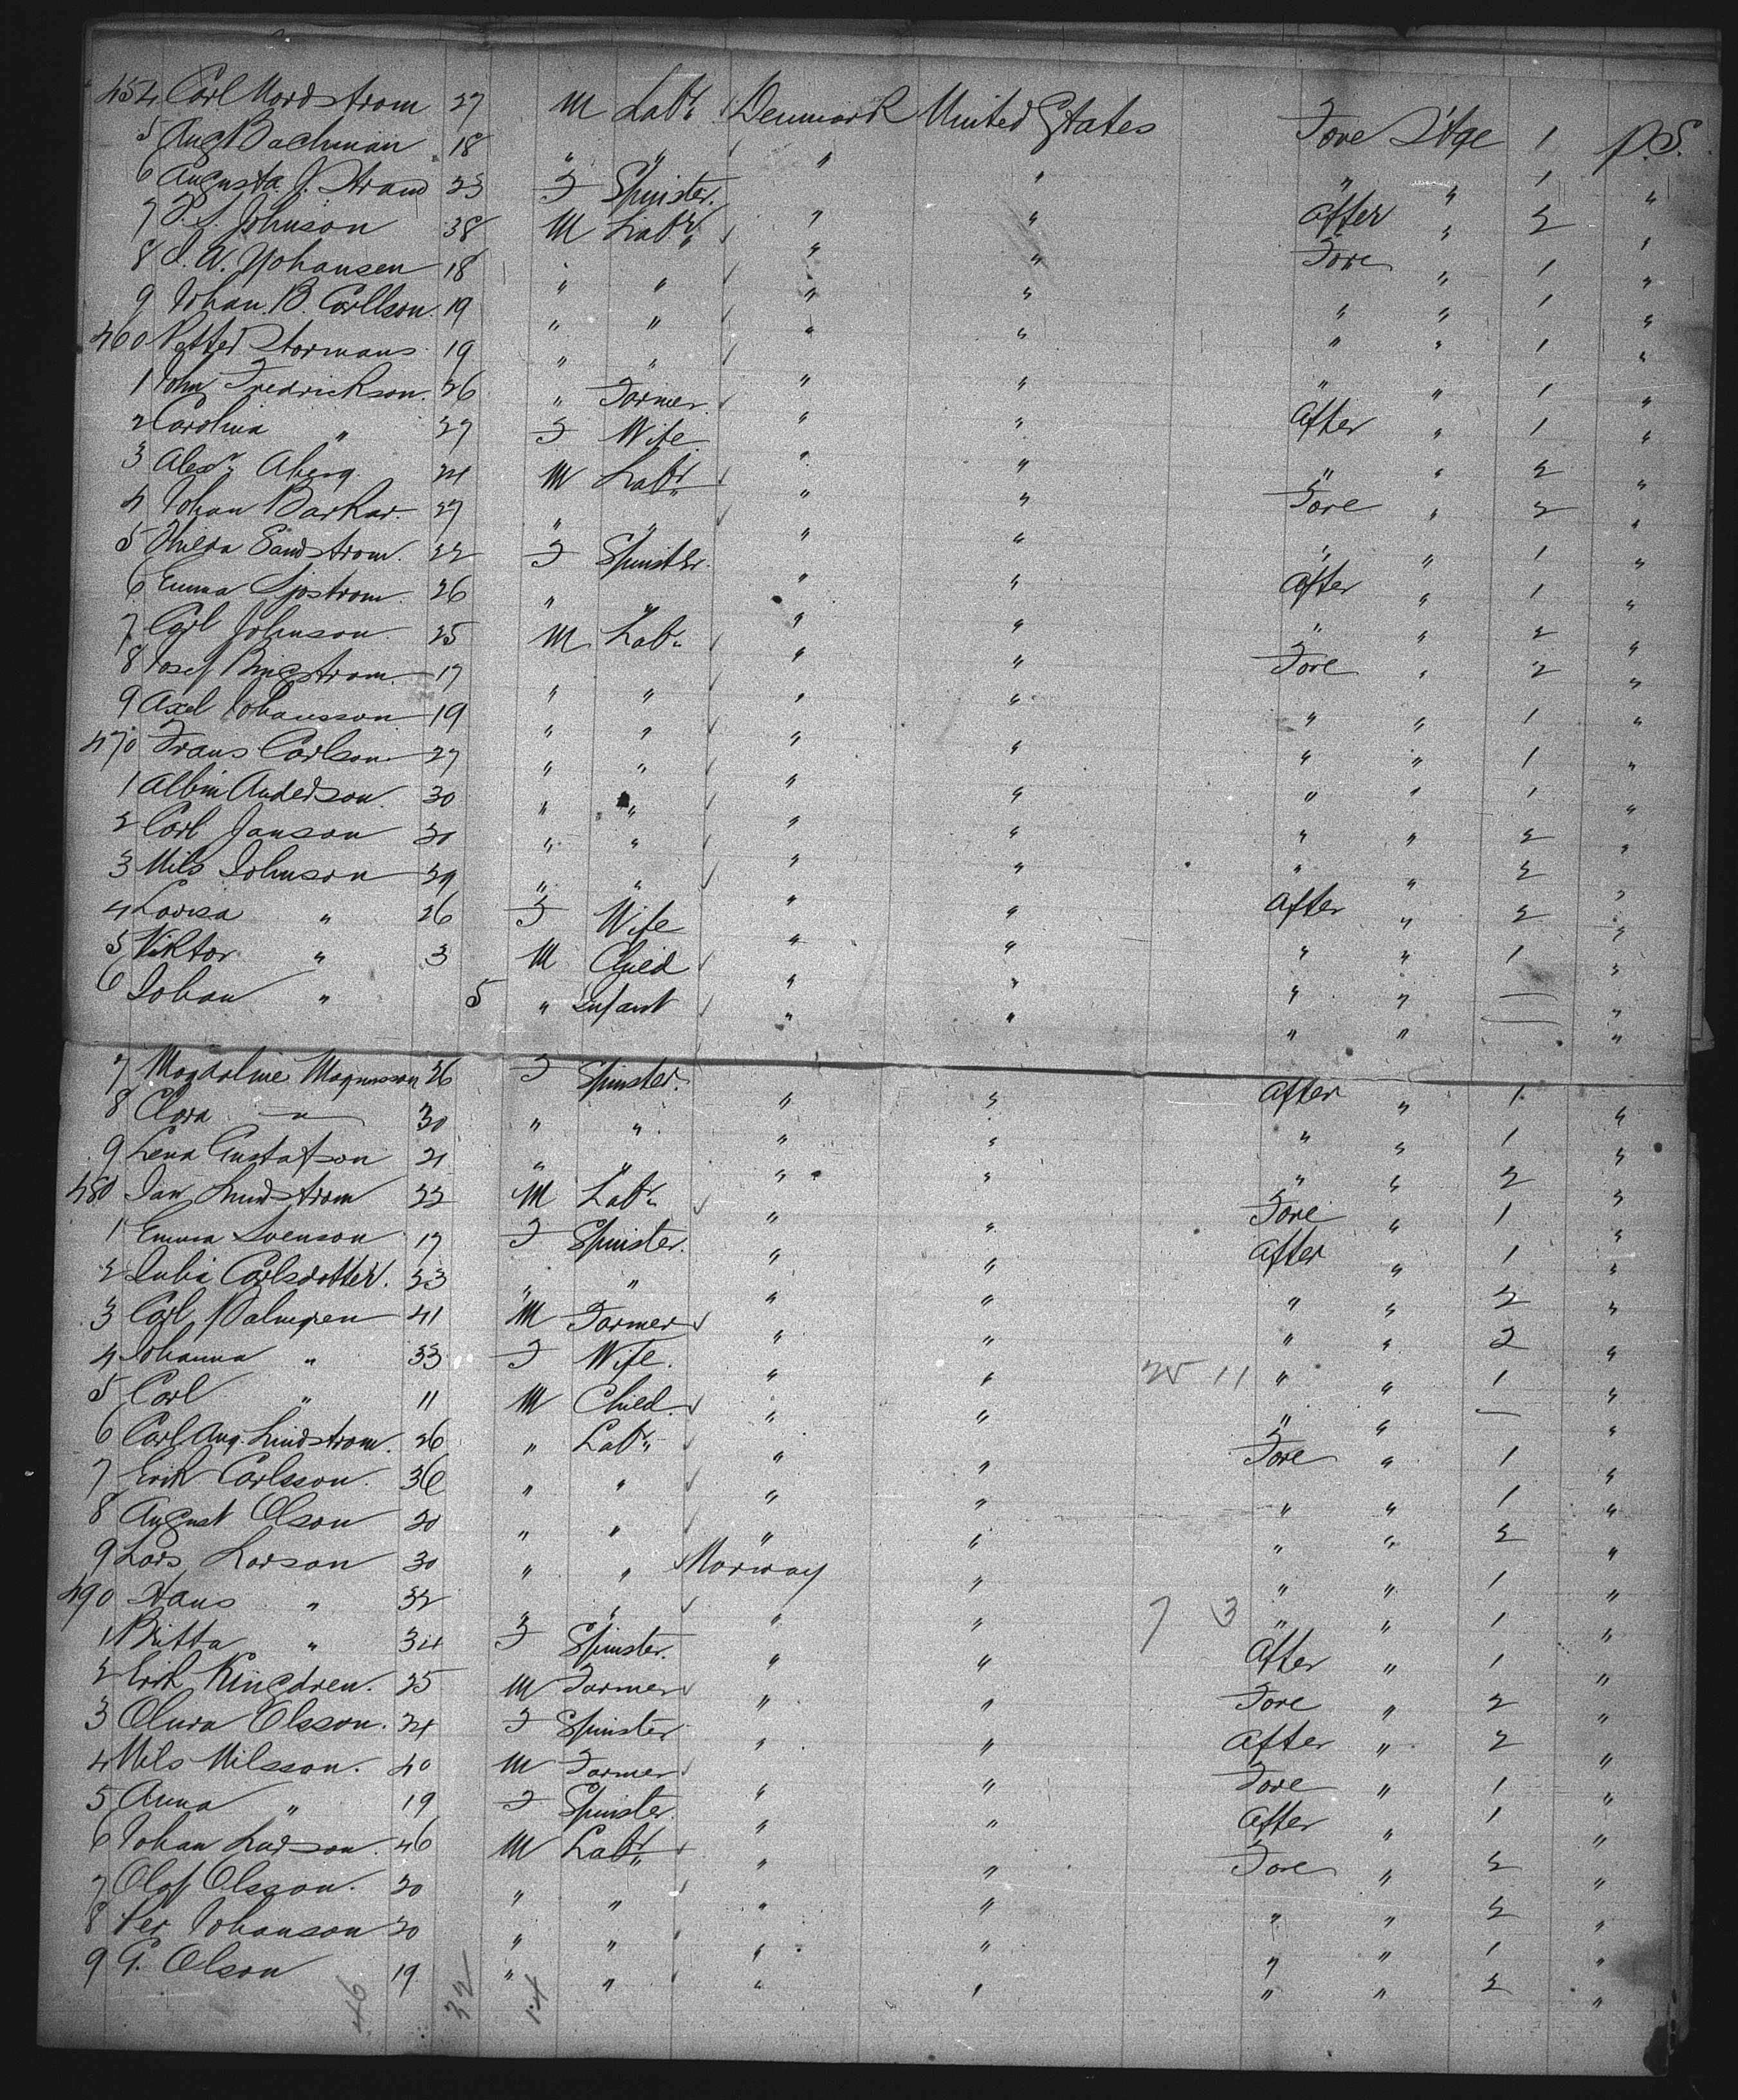 454 Carl Nordstrom 27 M Labr. Denmark United States Fore St'ge 1 P.S.
5 Aug Bachman 18 " " " " " " 1 "
6 Augusta J. Strand 23 F Spinster. " " After " 2 "
7 P. S. Johnson 38 M Labr. " " Fore " 1 "
8 J. W. Yohansen 18 " " " " " " 1 "
9 Johan B. Carllson 19 " " " " " " 1 "
460 Petter Stormans 19 " " " " " " 1 "
1 John Fredrickson. 26 " Farmer. " " After " 1 "
2 Carolina " 27 F Wife " " " " 2 "
3 Alexr. Aberg. 24 M Labr. " " Fore " 2 "
4 Johan Barkar. 27 " " " " " " 1 "
5 Hilda Sandstrom. 22 F Spinster. " " After " 1 "
6 Emma Sjostrom. 26 " " " " " " 2 "
7 Carl Johnson 25 M Labr. " " Fore " 2 "
8 Josef Bingstrom. 17 " " " " " " 1 "
9 Axel Johansson 19 " " " " " " 1 "
470 Frans Carlson. 27 " " " " " " 1 "
1 Albin Anderson. 30 " " " " " " 2 "
2 Carl Janson 20 " " " " " " 2 "
3 Nils Johnson 29 " " " " After " 2 "
4 Lovisa " 26 F Wife " " " " 1 "
5 Viktor " 3 M Child " " " " — "
6 Johan " 5 " Infant " " " " — "
7 Magdaline Magnusson 26 F Spinster. " " After " 1 "
8 Clara " 30 " " " " " " 1 "
9 Lena Gustafson 21 " " " " " " 2 "
480 Jan Lundstrom 22 M Labr. " " Fore " 1 "
1 Emma Svenson 17 F Spinster. " " After " 1 "
2 Julia Carlsdotter. 23 " " " " " " 2 "
3 Carl Palmgren 41 M Farmer " " " " 2 "
4 Johanna " 33 F Wife. " " 25 11 " " 1 "
5 Carl " 11 M Child. " " " " — "
6 Carl Aug. Lindstrom. 26 " Labr. " " Fore " 1 "
7 Erik Carlsson. 36 " " " " " " 1 "
8 August Olson 20 " " " " " " 2 "
9 Lars Larson 30 " " Norway " " " 1 "
490 Hans " 32 " " " " 7 3 " " 1 "
1 Britta " 34 F Spinster. " " After " 1 "
2 Erik Kingdren. 25 M Farmer " " Fore " 2 "
3 Olura Olsson. 24 F Spinster " " After " 2 "
4 Nils Nilsson. 40 M Farmer " " Fore " 1 "
5 Anna " 19 F Spinster. " " After " 1 "
6 Johan Larson. 46 M Labr. " " Fore " 2 "
7 Olof Olsson. 20 " " " " " " 2 "
8 Per Johanson 20 " " " " " " 1 "
9 G. Olson 19 " " " " " " 2 "
46 32 14